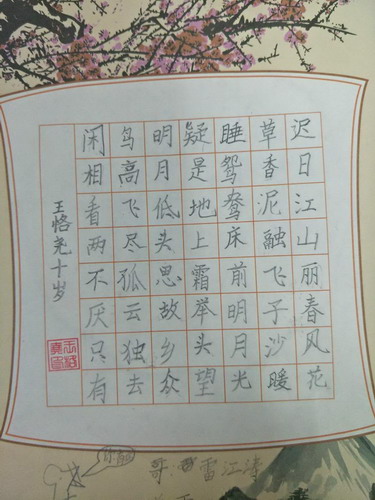 迟日江山丽春风花
草香泥融飞子沙暖
睡鸳鸯床前明月光
疑是地上霜举头望
明月低头思故乡众
鸟高飞尽孤云独去
闲相看两不厌只有
王恪尧十岁
哥 雷江